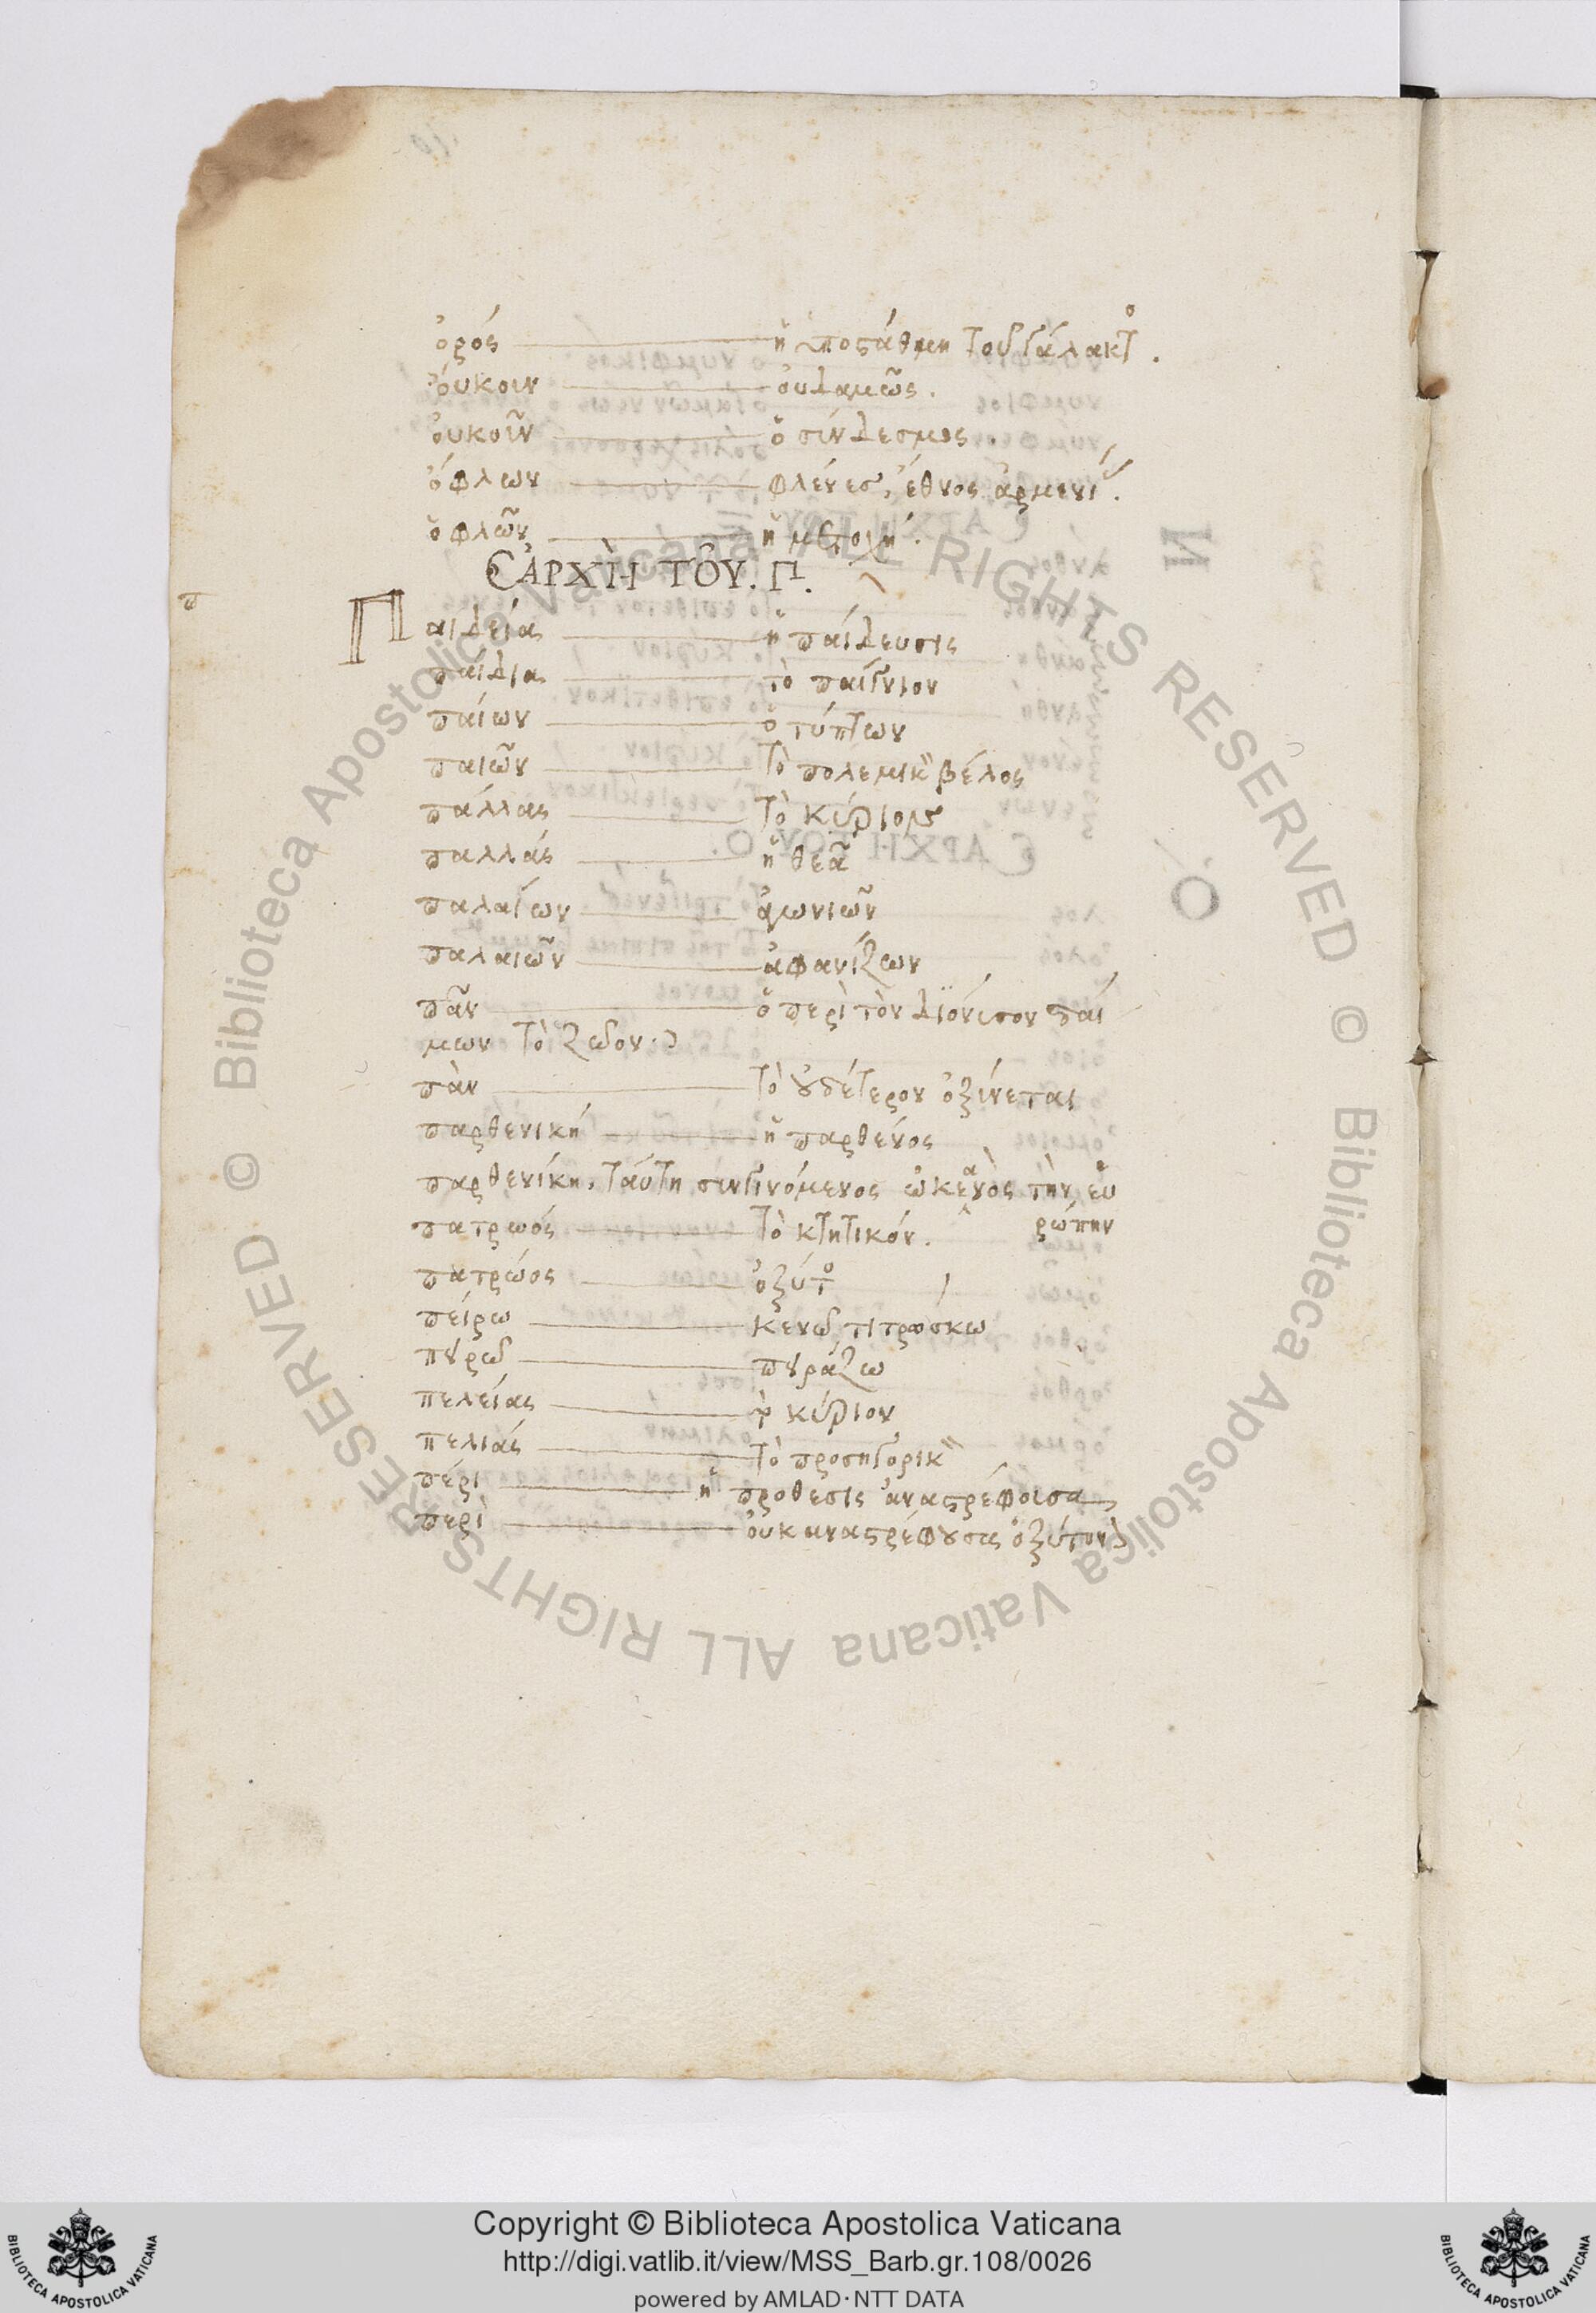 ὀρός ἡ ὑποστάθμη τοῦ γάλακτο.
ὄυκουν ὀυδαμῶς.
ὀυκοῦν ὁ σύνδεσμος.
ὄφλων φλένες, ἔθνος ἀρμενί.
ὀφλῶν ἡ μετοχή.
ἈΡΧῊ ΤΟΥ͂. Π.
π
Παιδείας ἡ παίδευσις
παίδια τὸ παίγνιον
παίων ὁ τύπτων
παιῶν τὸ πολεμικὸν βέλος
πάλλας τὸ κύριον
παλλάς ἡ θεᾶ
παλαίων ἀγωνιῶν
παλαιῶν ἀφανίζων
πᾶν ὁ περὶ τὸν διόνυσον δαί
μων τὸ ζωον.
πὰν τὸ ȣδέτερον ὀξύνεται
παρθενική ἡ παρθένος
παρθενίκη. ταύτη συγγινόμενος ὠκεανὸς τὴν εὐ
ρώπην
πατρωός τὸ κτητικόν.
πατρώος ὀξύτο
πείρω κενῶ, τιτρώσκω
πȣρῶ πȣράζω
πελείας κύριον
πελιάς τὸ προσηγορικὸν
πέρι ἡ πρόθεσις ἀναστρέφουσα
περὶ ὀυκ αναστρέφȣσα ὀξύτον
Copyright © Biblioteca Apostolica Vaticana
http://digi.vatlib.it/view/MSS_Barb.gr.108/0026
powered by AMLAD·NTT DATA
BIBLIOTECA APOSTOLICA VATICANA
BIBLIOTECA APOSTOLICA VATICANA
© Biblioteca Apostolica Vaticana ALL RIGHTS RESERVED
© Biblioteca Apostolica Vaticana ALL RIGHTS RESERVED